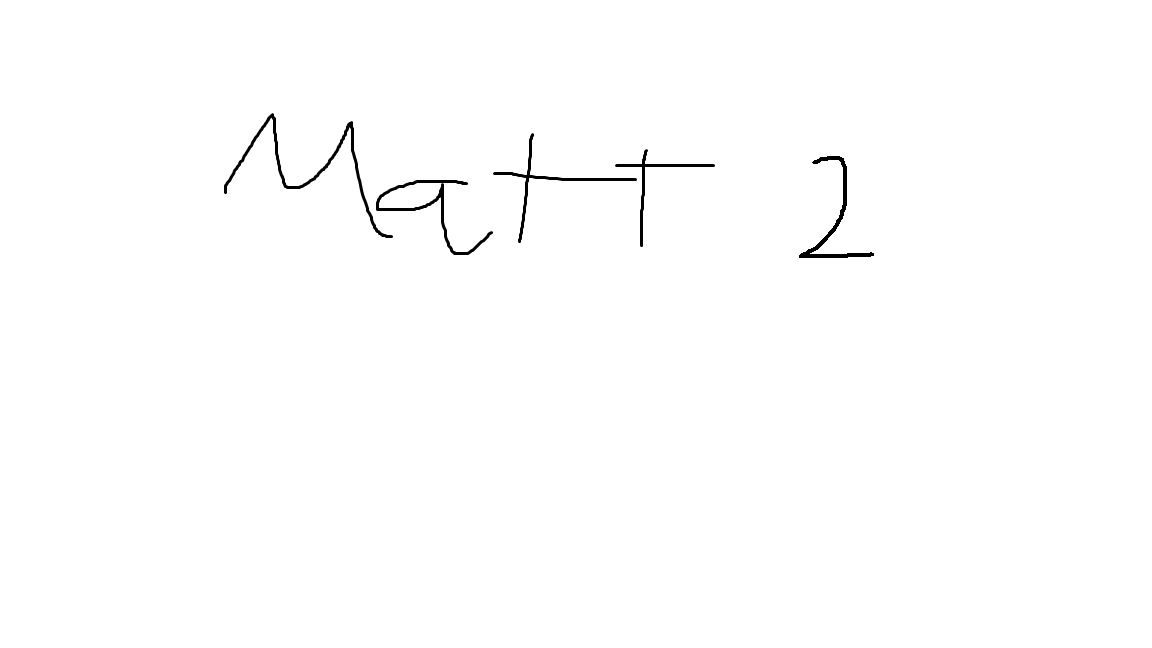 Matt 2